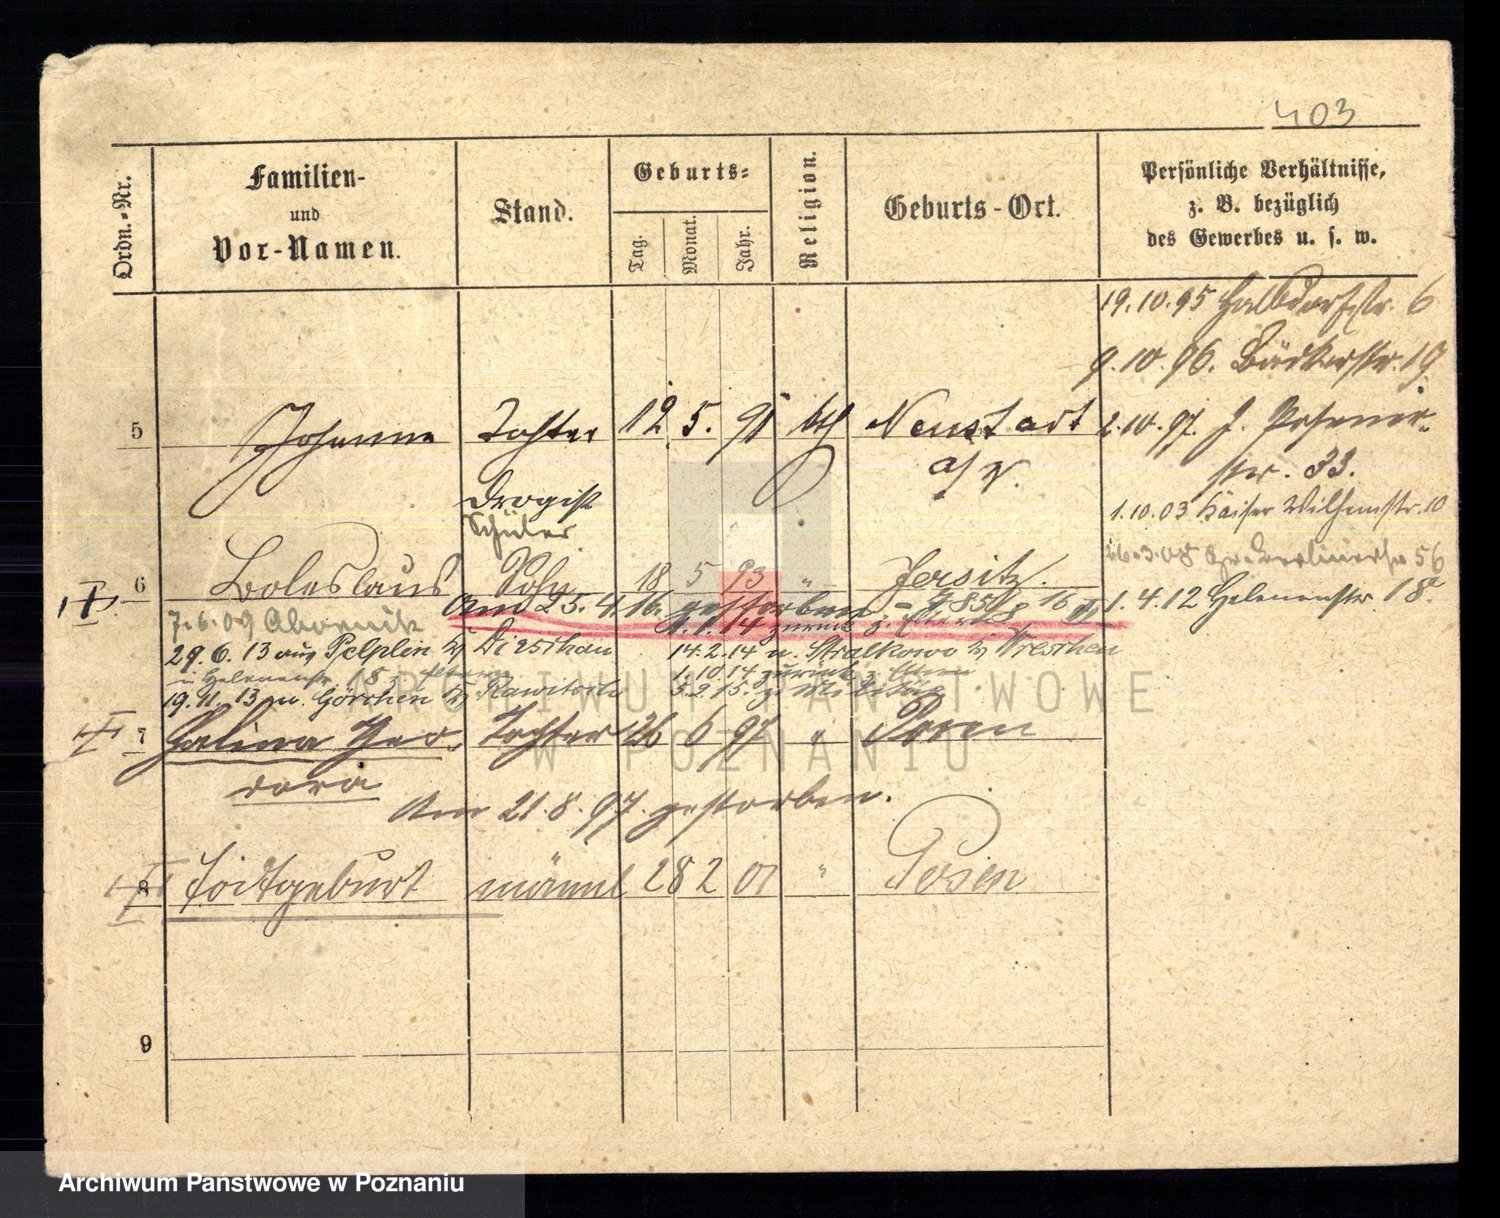 403
Ordn.-Nr.
Familien-
und
Vor-Namen.
Stand.
Geburts-
Tag.
Monat.
Jahr.
Religion.
Geburts-Ort.
Persönliche Verhältnisse,
z. B. bezüglich
des Gewerbes u. s. w.
19.10.95 Halbdorfstr. 6
9.10.96. Bäckerstr. 19
5 Johanna Tochter 12 5. 91 kth Neustadt
a/W.
2.10.97. J. Posener-
str. 33.
Drogist
Schüler
1.10.03 Kaiser Wilhelmstr. 10
6 Boleslaus Sohn 18 5 93 " Jersitz.
26.3.08 56
1.4.12 Helenenstr. 18
am 25.4.16. gestorben
7.6.09 Abornik
1.1.14 zurück
29.6.13 aus Pelplin b/ Dirschau
14.2.14 n. Stralkowo b/ Wreschen
n Helenenstr. 8
1.10.14 zurück z. Eltern
19.11.13 n. Görchen b/ Rawitsch
3.2.15.
7 Halina Theo- Tochter 26 6 97 " Posen
dora
Am 21.8.97. gestorben.
8 Todtgeburt männl 28 2 01 " Posen
9
ARCHIWUM PAŃSTWOWE
W POZNANIU
Archiwum Państwowe w Poznaniu